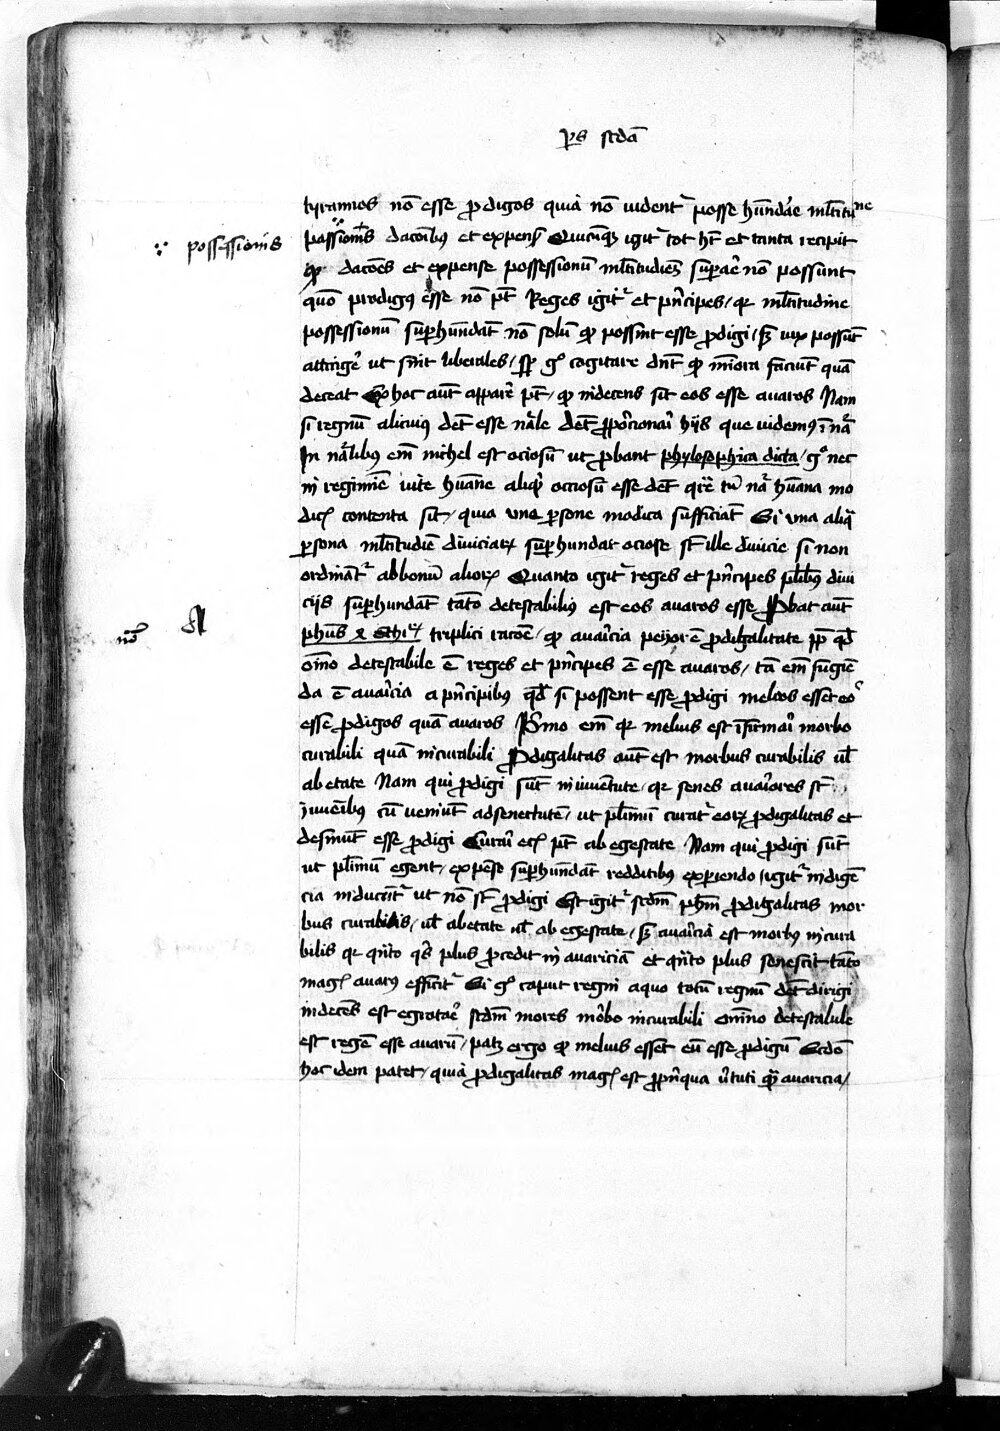 ps scdā
tyrannos nō esse prodigos quia nō uidentr posse hundāe mltitune
passionis dacōibus et expensꝭ Quicūqꝫ igitr tot ht et tanta recipit
qꝫ dacōes et expense possessionū mltitudieꝫ suparē nō possunt
possessionis
quō prodigus esse nō pt Reges igitr et pncipes / qr mltitudine
possessionū suphundāt nō solū qꝫ possint esse prodigi / sꝫ uix possūt
attingē ut sint liberales / sꝫ gͦ cogitare dnt qꝫ miora faciūt quā
deceat Exͦ hoc aūt apparē pt / qꝫ indecens sit eos esse auaros Nam
si regnū alicuiꝰ dꝫ esse nāle dꝫ proporcionari hijs que uidemꝰ ī nā
In nālibus em̄ nichel est ociosū ut probant phylosophica dicta / gͦ nec
in regimie uite huāne aliqd occiosū esse dꝫ qrē tū nā huāna mo
dicꝭ contenta sit / quia une psone modica sufficiāt Si una aliq
psona mltitudiē diuiciarꝝ suphundat ociose st ille diuicie si non
ordinātr ad bonū aliorꝝ Quanto igitr reges et pncipes plibꝰ diui
cijs suphundāt tāto detestabiliꝰ est eos auaros esse Probat aūt
nōͦ
phūs 4 Ethicꝝ triplici racōe / qꝫ auaricia peior ē prodigalitate pp qd
oīno detestabile ē reges et pncipes ē esse auaros / tā em̄ fugiē
da ē auaricia a pncipibus qd si possent esse prodigi melius esset eoͨ
esse prodigos quā auaros Primo em̄ qr melius est īfirmari morbo
curabili quā incurabili Prodigalitas aūt est morbus curabilis ul
ab etate Nam qui prodigi sūt in iuuētute / qr senes auariores st
iuuēibus cū ueniūt ad senectutē / ut plimū curatr eorꝝ prodigalitas et
desinūt esse prodigi Curari ecꝭ pt ab egestate Nam qui prodigi sūt
ut plimū egent / expēse suphundāt redditibus expiendo / igitr indigē
cia inducitr ut nō st prodigi Est igitr scdm phm prodigalitas mor
bus curabilis / ul ab etate ul ab egestate / sꝫ auaricia est morbꝰ incura
bilis qr qnto qs plus procedit in auariciā et qnto plus senescit tāto
magꝭ auarꝰ efficitr Si gͦ caput regni a quo totū regnū dꝫ dirigi
indecēs est egrotarē scdm mores morbo incurabili omīno detestabile
est regē esse auarū / patꝫ ergo qꝫ melius esset eū esse prodigū Scdō
hoc idem patet / quia prodigalitas magꝭ est propinqua uirtuti quā auaricia /